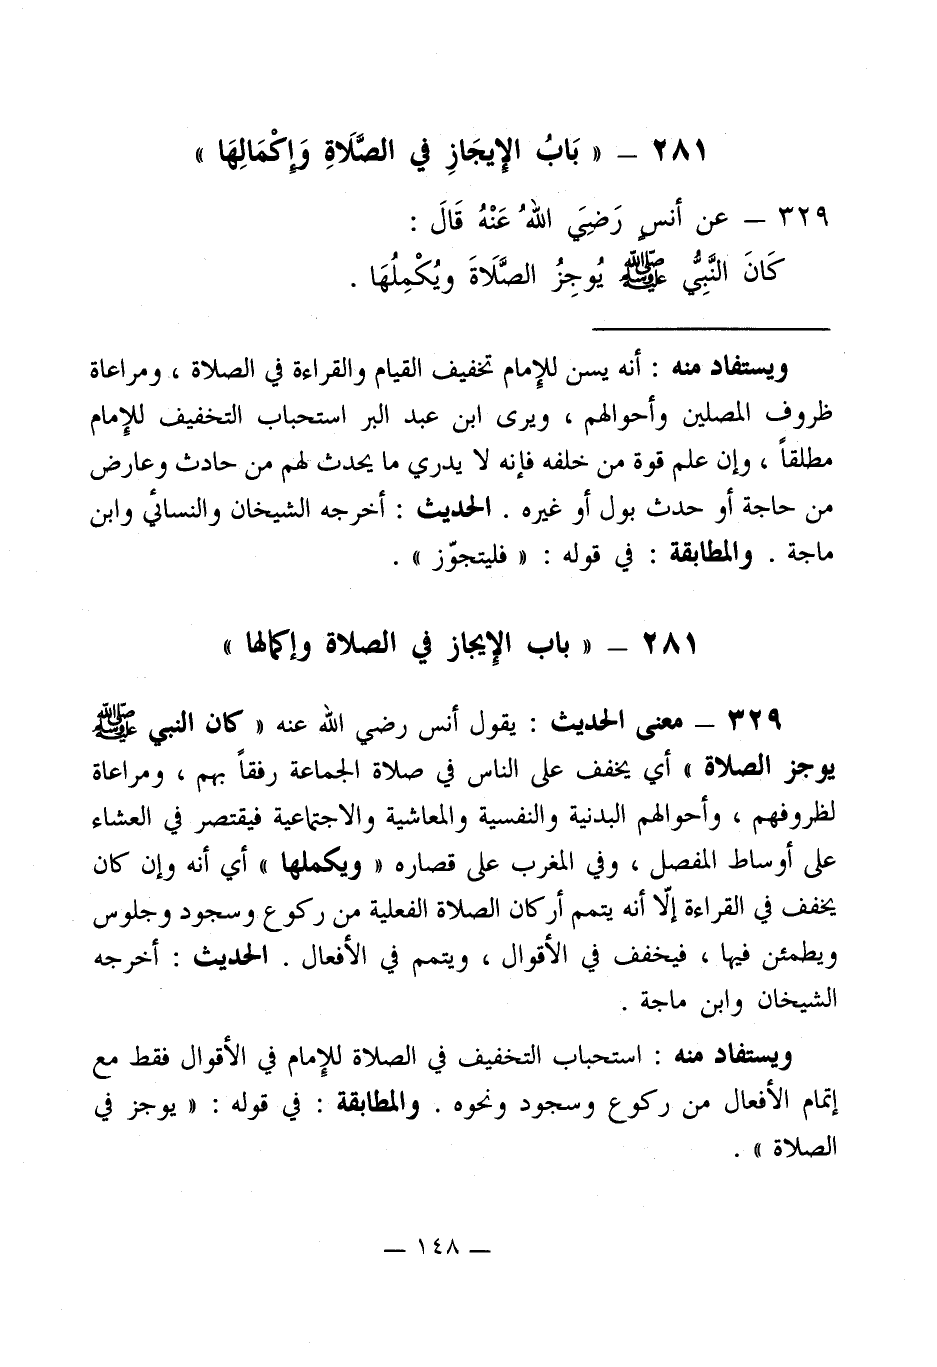 ٢٨١ – « بَابُ الإِيجَازِ في الصَّلَاةِ وَإِكْمَالِهَا »
٣٢٩ – عن أنسٍ رَضِيَ اللهُ عَنْهُ قَالَ :
كَانَ النَّبِيُّ ﷺ يُوجِزُ الصَّلَاةَ ويُكْمِلُهَا .
ويستفاد منه : أنه يسن للإمام تخفيف القيام والقراءة في الصلاة ، ومراعاة
ظروف المصلين وأحوالهم ، ويرى ابن عبد البر استحباب التخفيف للإمام
مطلقاً ، وإن علم قوة من خلفه فإنه لا يدري ما يحدث لهم من حادث وعارض
من حاجة أو حدث بول أو غيره . الحديث : أخرجه الشيخان والنسائي وابن
ماجة . والمطابقة : في قوله : « فليتجوّز » .
٢٨١ – « باب الإيجاز في الصلاة وإكمالها »
٣٢٩ – معنى الحديث : يقول أنس رضي الله عنه « كان النبي ﷺ
يوجز الصلاة » أي يخفف على الناس في صلاة الجماعة رفقاً بهم ، ومراعاة
لظروفهم ، وأحوالهم البدنية والنفسية والمعاشية والاجتماعية فيقتصر في العشاء
على أوساط المفصل ، وفي المغرب على قصاره « ويكملها » أي أنه وإن كان
يخفف في القراءة إلّا أنه يتمم أركان الصلاة الفعلية من ركوع وسجود وجلوس
ويطمئن فيها ، فيخفف في الأقوال ، ويتمم في الأفعال . الحديث : أخرجه
الشيخان وابن ماجة .
ويستفاد منه : استحباب التخفيف في الصلاة للإمام في الأقوال فقط مع
إتمام الأفعال من ركوع وسجود ونحوه . والمطابقة : في قوله : « يوجز في
الصلاة » .
– ١٤٨ –